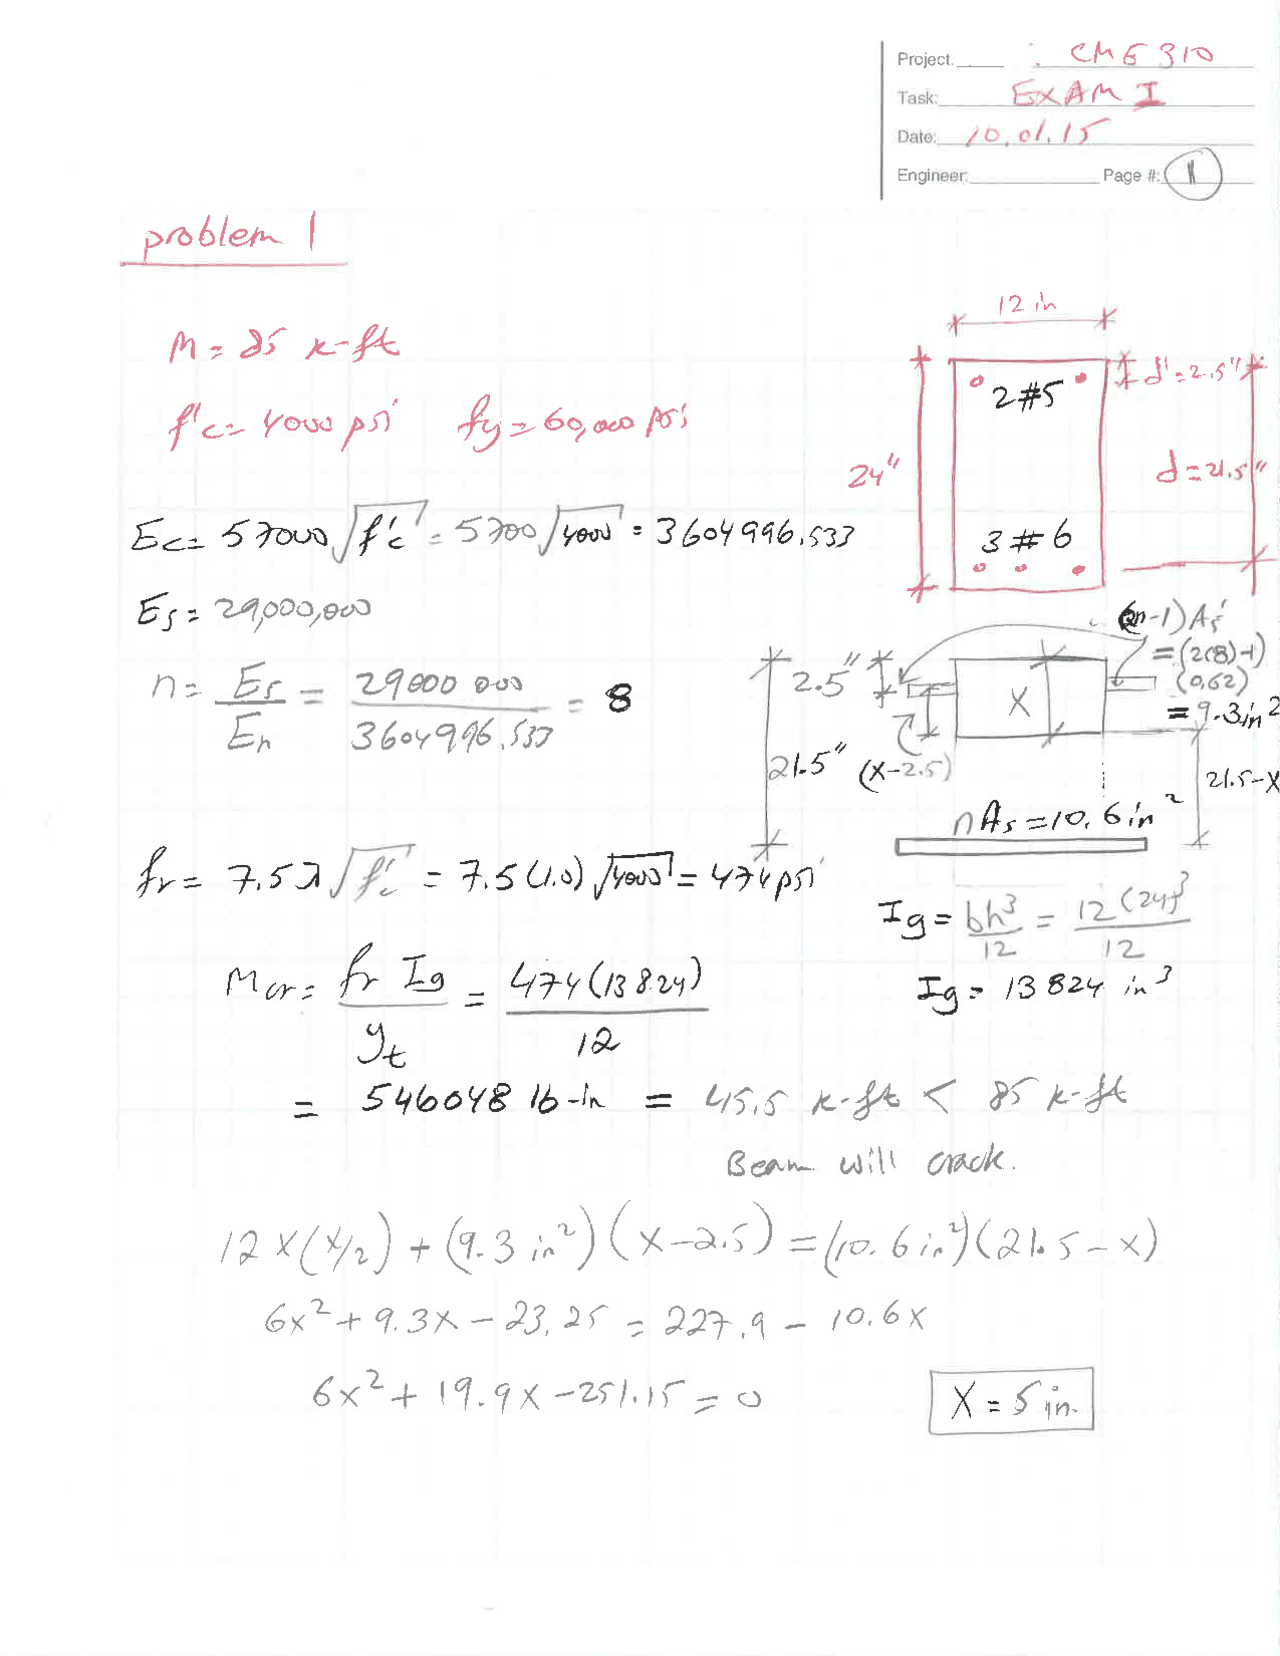 Project. : CME 310
Task: EXAM I
Date: 10.01.15
Engineer: Page #: 1
problem 1
12 in
M = 85 k-ft
2#5
d' = 2.5"
f'c = 4000 psi fy = 60,000 psi
24"
d = 21.5"
Ec = 57000 √f'c = 5700 √4000 = 3604996.533
3#6
Es = 29,000,000
(2n-1) A's
= (2(8)-1)
(0.62)
= 9.3 in²
n = Es/En = 29000 000/3604996.533 = 8
2.5"
X
21.5" (x-2.5)
21.5-X
nAs = 10.6 in²
fr = 7.5λ√f'c = 7.5 (1.0) √4000 = 474 psi
Ig = bh³/12 = 12 (24)³/12
Ig = 13824 in³
Mcr = fr Ig/yt = 474 (13824)/12
= 546048 lb-in = 45.5 k-ft < 85 k-ft
Beam will crack.
12 X (X/2) + (9.3 in²) (X-2.5) = (10.6 in²) (21.5 - X)
6x² + 9.3X - 23.25 = 227.9 - 10.6X
6x² + 19.9X - 251.15 = 0
X = 5 in.